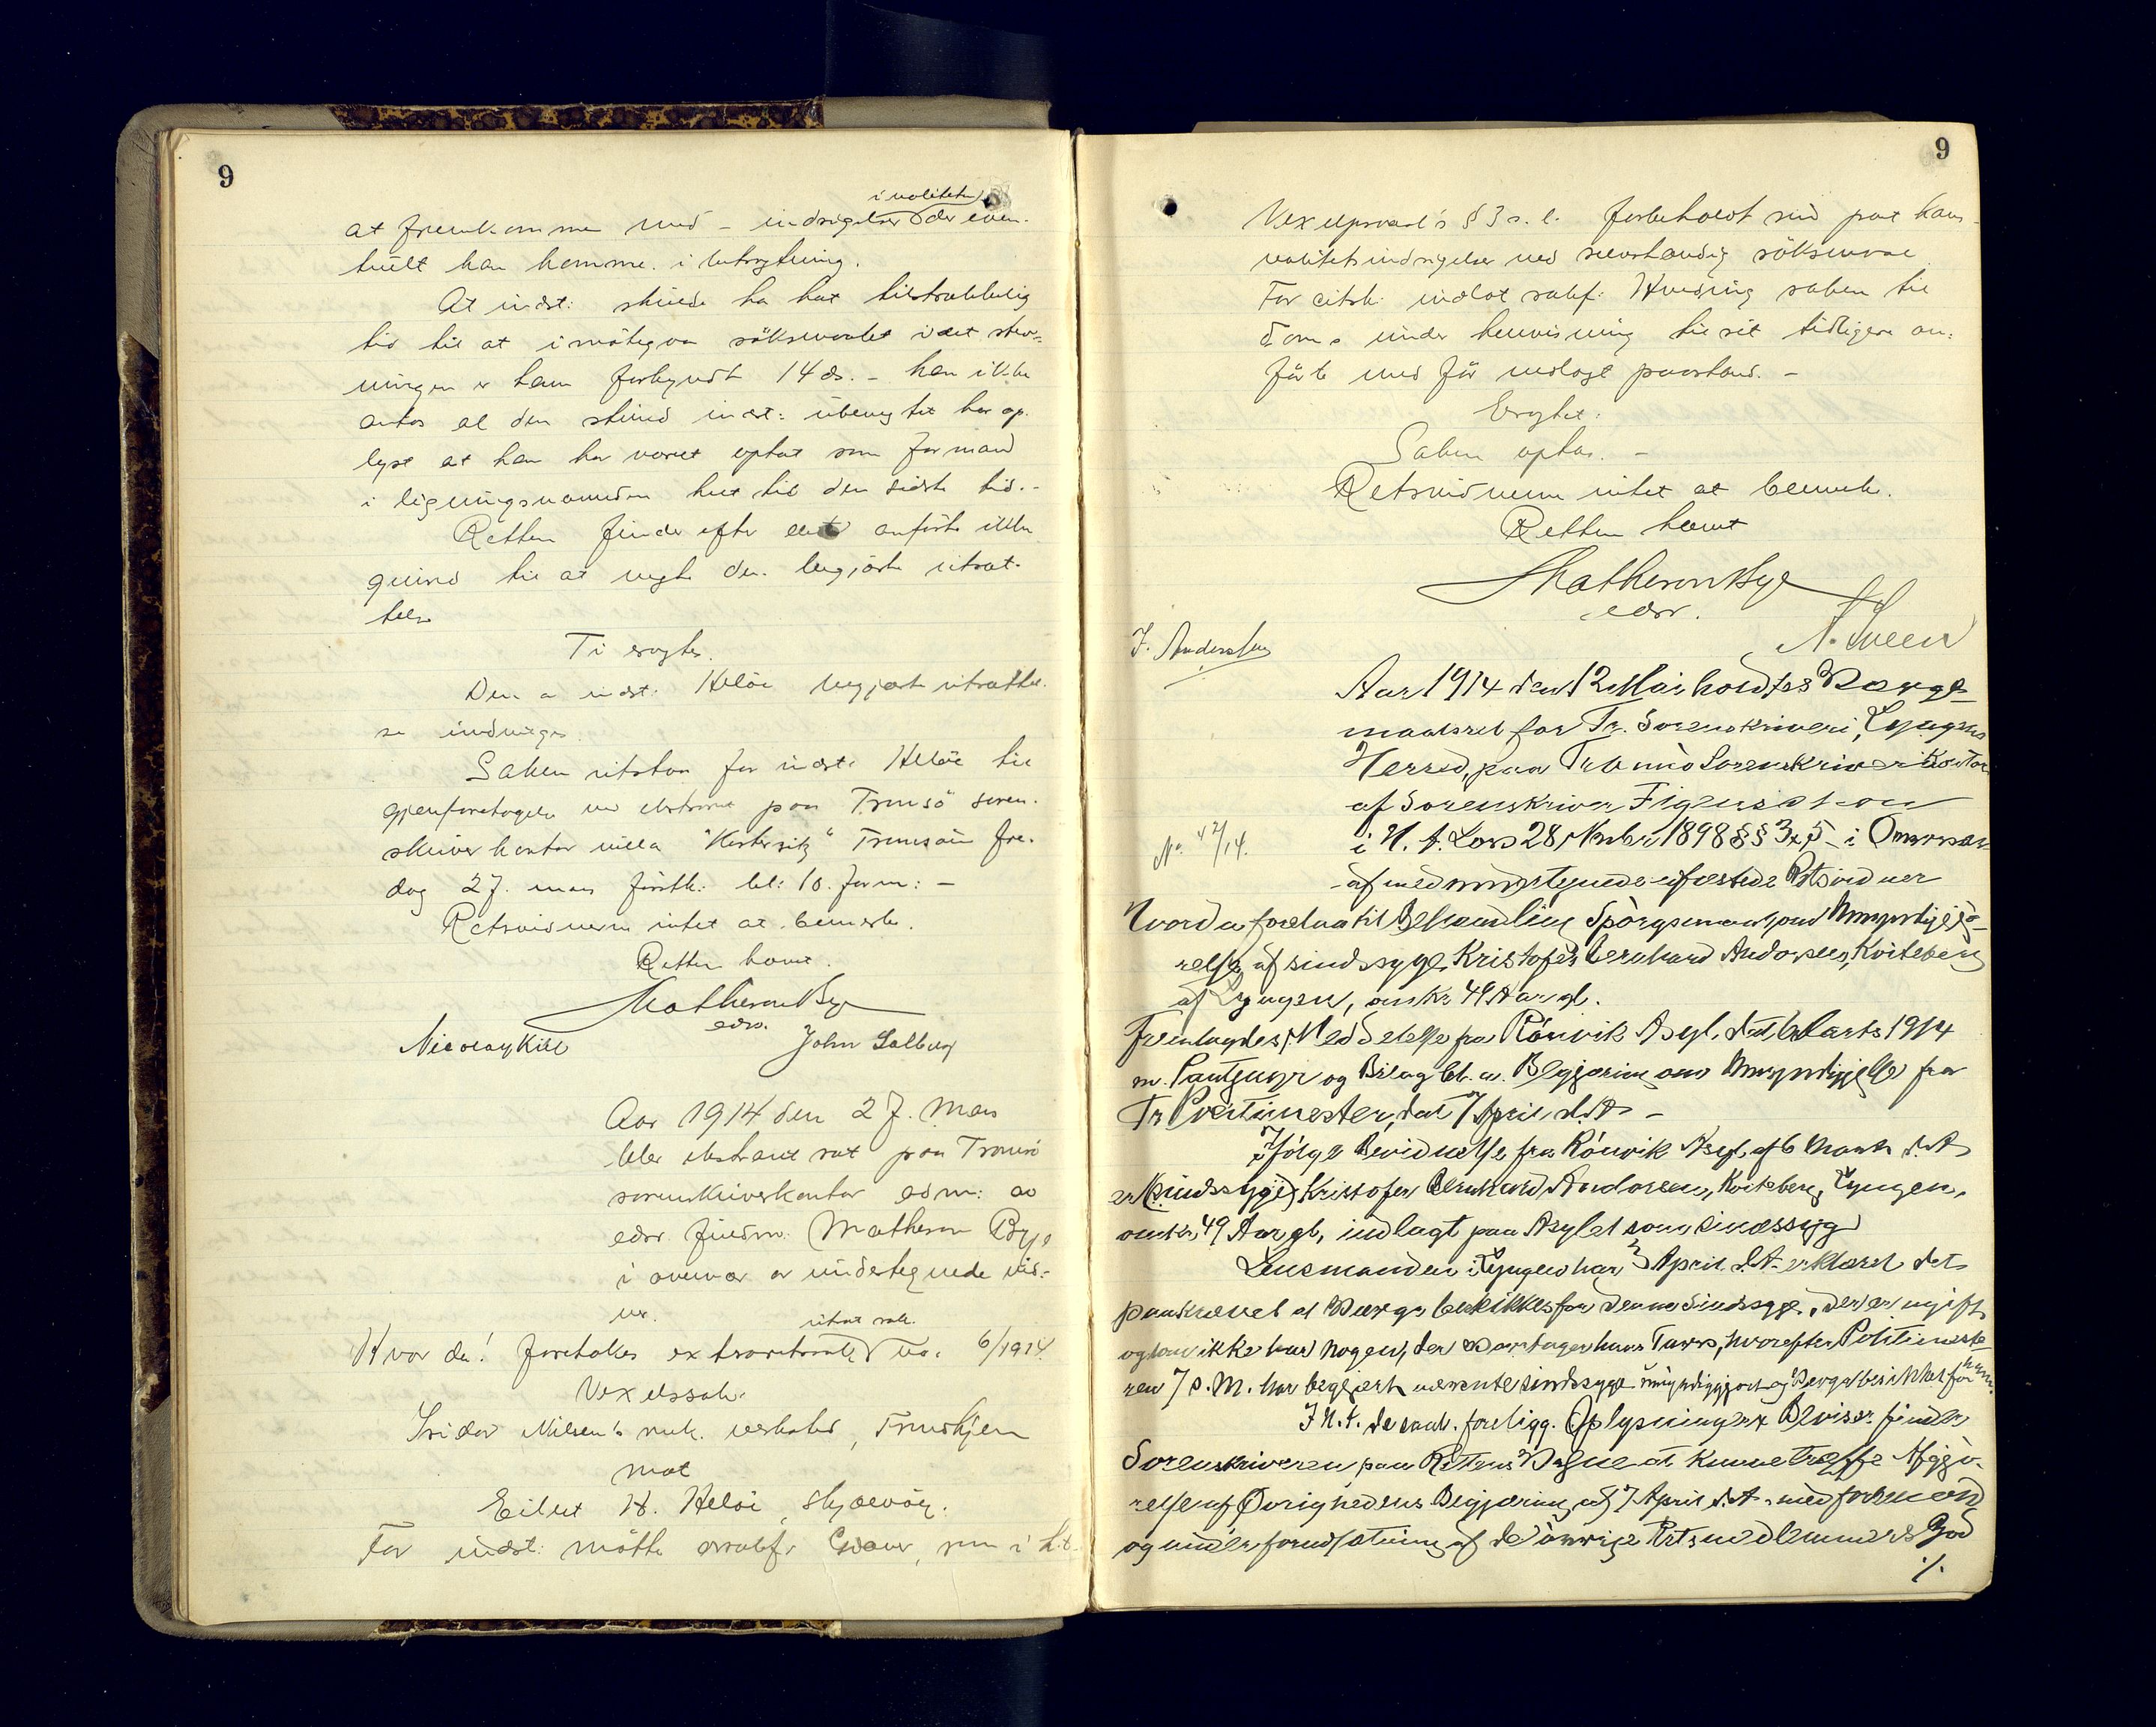 9
i realiteten
at fremkomme med – indsigelser der even-
tuelt kan komme i betragtning.
At indst: skulde ha hat tilstrækkelig
tid til at imøtegaa søksmaalet idet stev-
ningen er ham forkyndt 14 ds. – kan ikke
antas al den stund indst: ubenegtet har op-
lyst at han har været optat som formand
i ligningsnævnden hele til den sidste tid. –
Retten finder efter det anførte ikke
grund til at negte den begjærte utsæt-
telse
Ti eragtes:
Den av indst: Heløe begjærte utsættel-
se indvilges.
Saken utstaar for indst: Heløe til
gjenforetagelse ved ekstraret paa Tromsø soren-
skriverkontor villa "Kortersitz" Tromsøen fre-
dag 27. mars førstk: kl: 10. form: –
Retsvidnerne intet at bemerke.
Retten hævet.
Matheson Bye
edsv.
Nicolay Kiil John Solberg
Aar 1914 den 27. mars
blev ekstraret sat paa Tromsø
sorenskriverkontor adm: av
edsv fuldm. Matheson Bye
i overvær av undertegnede vid-
ner.
utsat sak.
Hvor da! foretokes extraretssak No. 6/1914.
Vexelssak.
Isidor Nilsen's mek. verksted, Trondhjem
mot
Eilert H. Heløe, Skjærvøy.
For indst: møtte ovsakf:
9
Vexelprosesl's § 3 s. l. forbeholdt sig paa
realitetsindsigelser ved selvstændig søksmaal
For citsk: indlot sakf: Husding saken til
doms under henvisning til sit tidligere an-
førte med før nedlagt paastand. –
Eragtet:
Saken optas. –
Retsvidnerne intet at bemerke.
Retten hævet
Matheson Bye
edsv.
J. Anderssen
Aar 1914 den 12 Mai holdtes Værge-
maalsret for Tr. Sorenskriveri, Lyngens
Herred, paa Tromsø Sorenskriverikontor
af Sorenskriver Figenschou
i H. t. Lov 28 Novbr 1898 §§ 3 x 5 – i Overvær
No. 42/14.
af medundertegnede edfæstede Retsvidner
Hvorda foretoges til Behandling Spørgsmaal om Umyndiggjø-
relse af sindssyge Kristofer Bernhard Andorsen, Kviteberg
af Lyngen, omkr. 49 Aar gl.
Fremlagdes Meddelelse fra Rønvik Asyl, dat. 6 Marts 1914
m. Paategngr og Bilag bl. a. Begjæring om Umyndiggjørelse fra
Tr Politimester, dat 7 April d. A. –
Ifølge Bevidnelse fra Rønvik Asyl af 6 Marts d. A
er (sindssyge) Kristofer Bernhard Andorsen, Kviteberg, Lyngen,
omkr. 49 Aar gl, indlagt paa Asylet som sindssyg
Lensmanden i Lyngen har 3 April d. A. erklæret det
paakrævet at Værge beskikkes for denne Sindssyge, der er ugift
og som ikke har nogen, der varetager hans Tarv, hvorefter Politimeste-
ren 7 s. M. har begjært nævnte sindssyge umyndiggjort og Værge beskikket for ham.
I H. t. de saal. foreligg. Oplysninger x Beviser finder
Sorenskriveren paa Rettens Vegne at kunne træffe Afgjø-
relse af Øvrighedens Begjæring af 7 April d. A.
og under forudsætning af de øvrige Retsmedlemmers God
./.